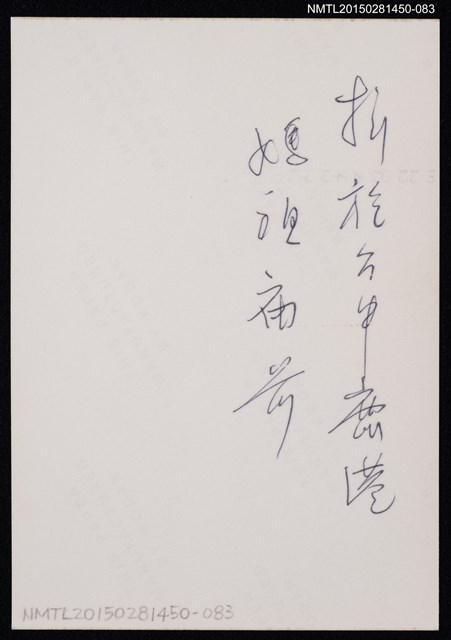 NMTL20150281450-083
攝於台中鹿港
媽祖廟前
NMTL20150281450-083